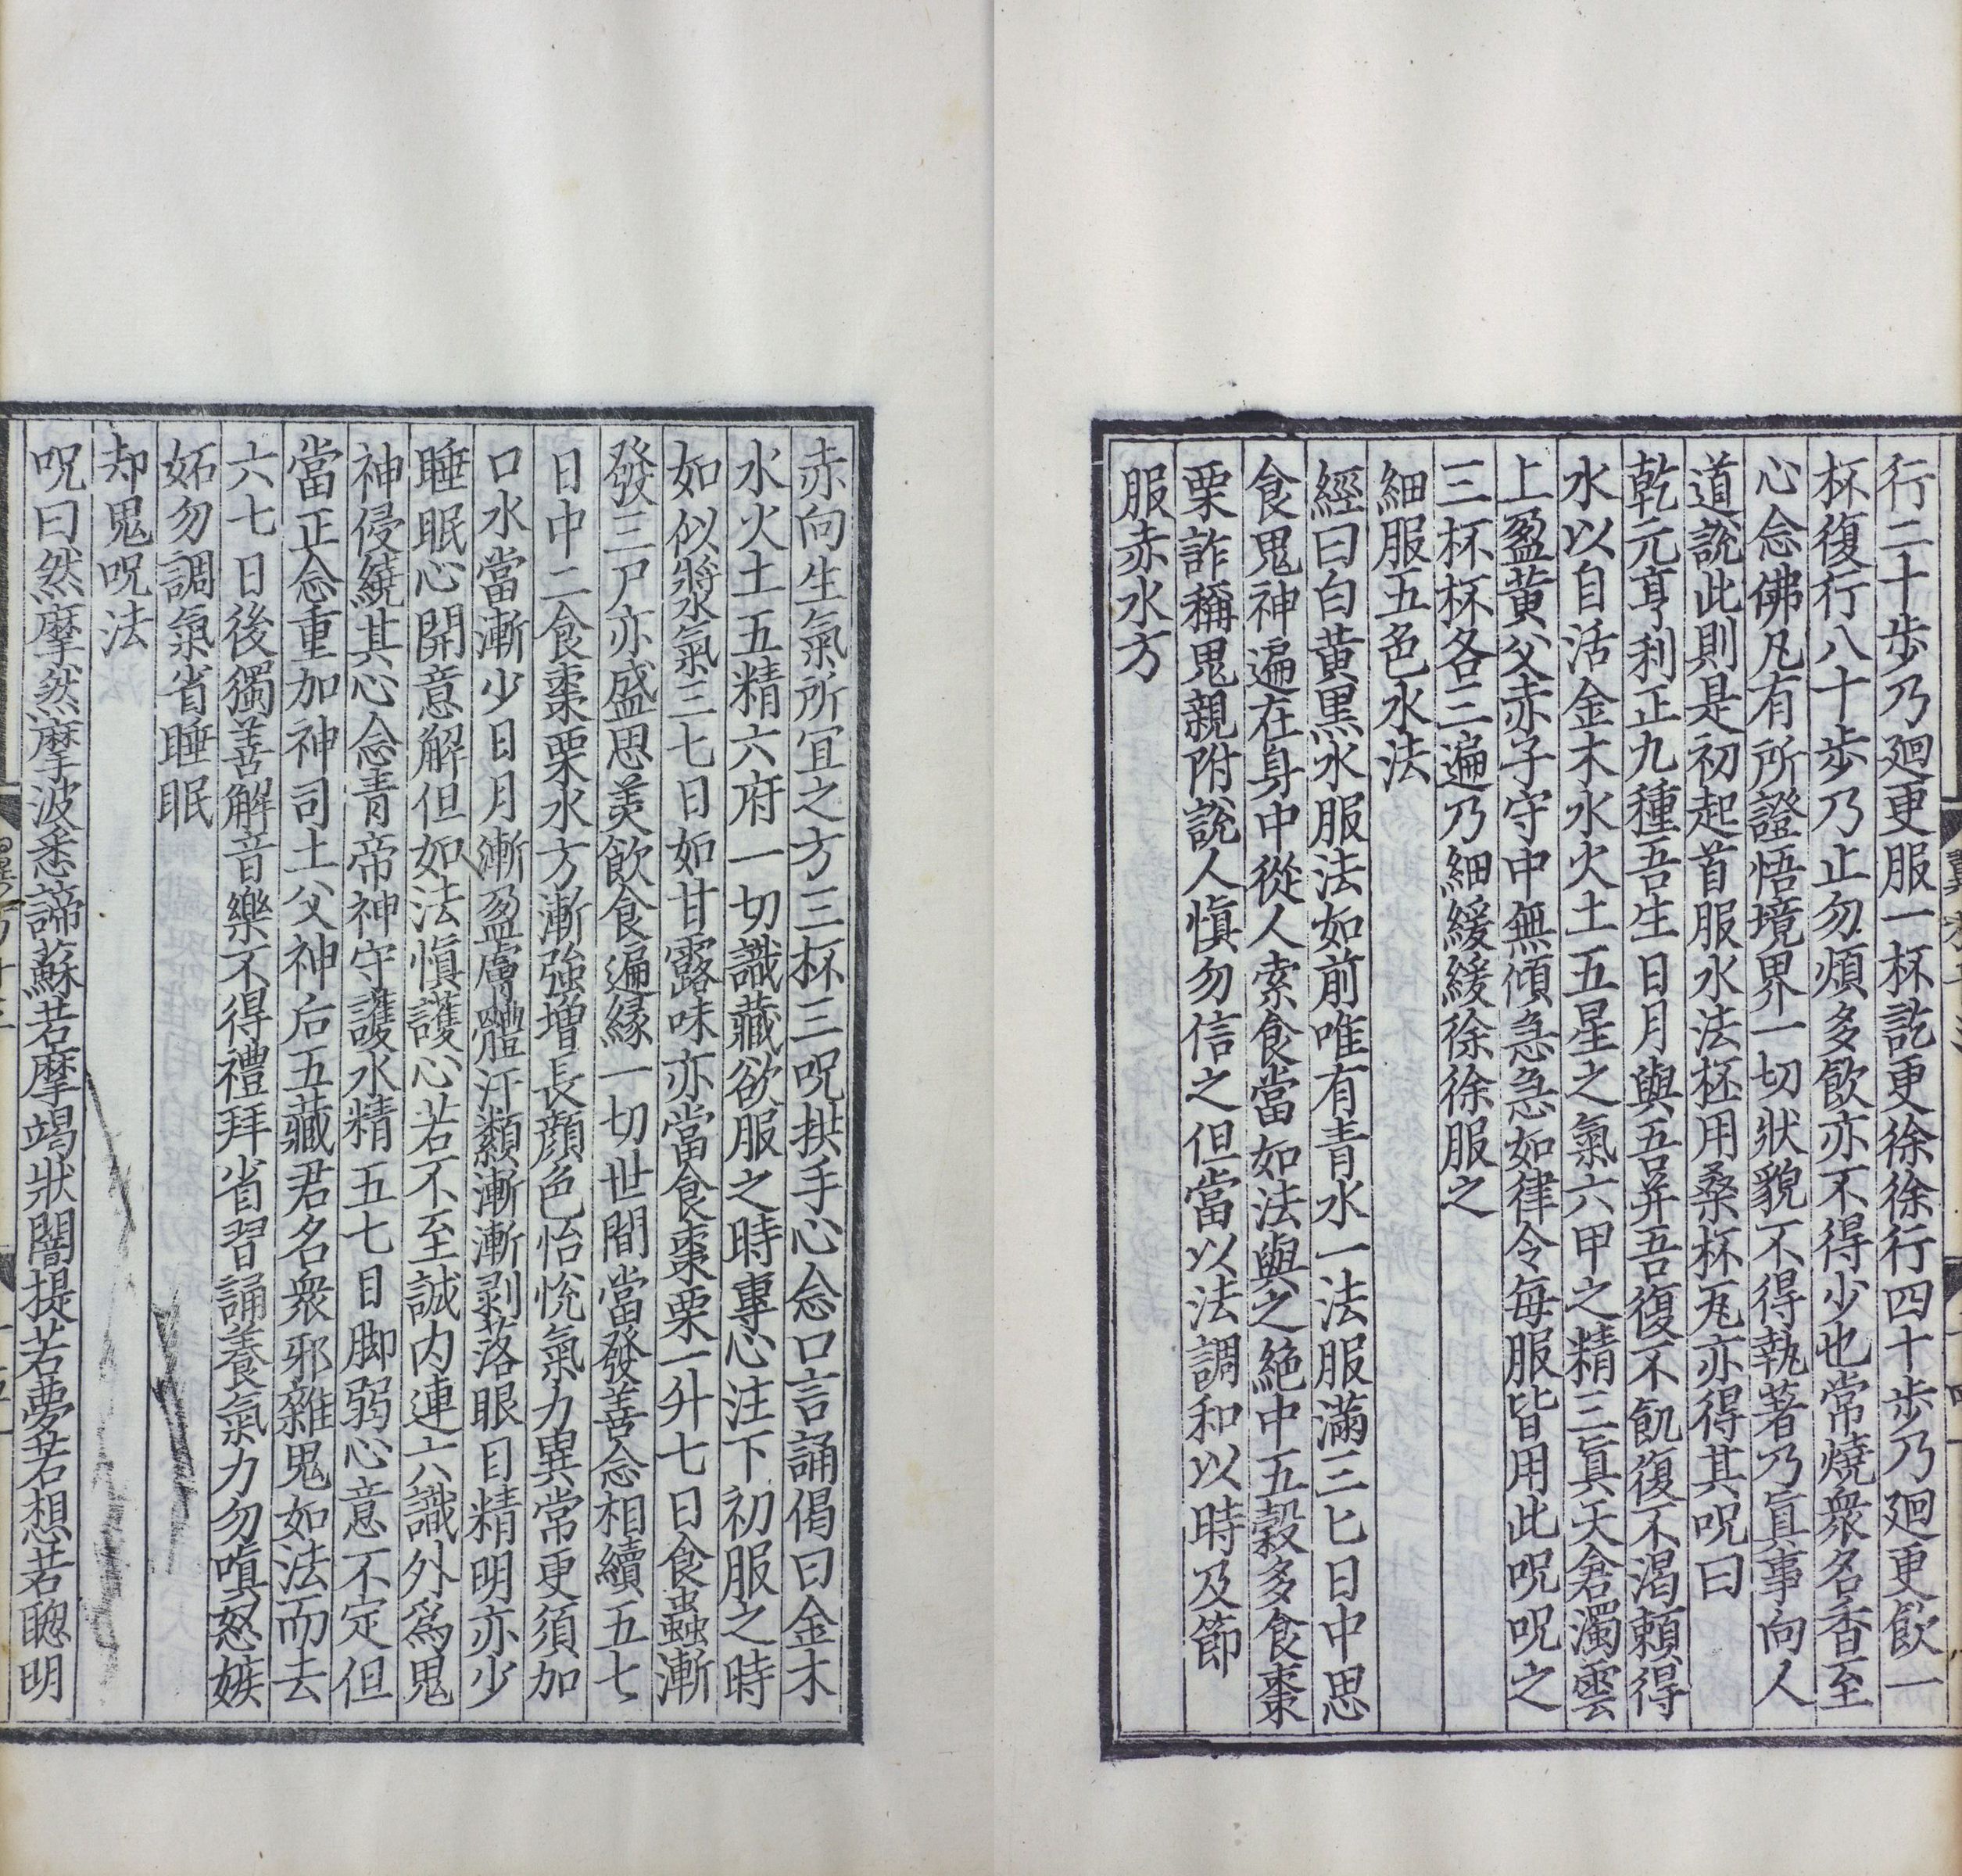 行二十歩乃廻更服一杯訖更徐徐行四十歩乃廻更飲一
杯復行八十歩乃止勿煩多飲亦不得少也常燒衆名香至
心念佛凡有所證悟境界一切狀貌不得執著乃眞事向人
道說此則是初起首服水法杯用桑杯瓦亦得其呪曰
乾元亨利正九種吾生日月與吾并吾復不飢復不渴賴得
水以自活金木水火土五星之氣六甲之精三眞天倉濁雲
上盈黄父赤子守中無傾急急如律令每服皆用此呪呪之
三杯杯各三遍乃細緩緩徐徐服之
細服五色水法
經曰白黄黒水服法如前唯有青水一法服滿三匕日中思
食鬼神遍在身中從人索食當如法與之絶中五穀多食棗
栗詐稱鬼親附說人愼勿信之但當以法調和以時及節
服赤水方
赤向生氣所宜之方三杯三呪拱手心念口言誦偈曰金木
水火土五精六府一切識藏欲服之時專心注下初服之時
如似將氣三七日如甘露味亦當食棗栗一升七日食蟲漸
發三尸亦盛思羙飲食遍緣一切世間當發善念相續五七
日中二食棗栗水方漸強增長顔色怡悅氣力異常更須加
口水當漸漸少日月漸漸盈膚體汗纇漸漸剥落眼目精明亦少
睡眠心開意解但如法愼護心若不至誠内連六識外爲鬼
神侵繞其心念青帝神守護水精五七日脚弱心意不定但
當正念重加神司土父神后五藏君名衆邪雜鬼如法而去
六七日後獨善解音樂不得禮拜省習誦養氣力勿嗔怒嫉
妬勿調氣省睡眠
却鬼呪法
呪曰然摩然摩波悉諦蘇若摩竭狀闍提若夢若想若聰明